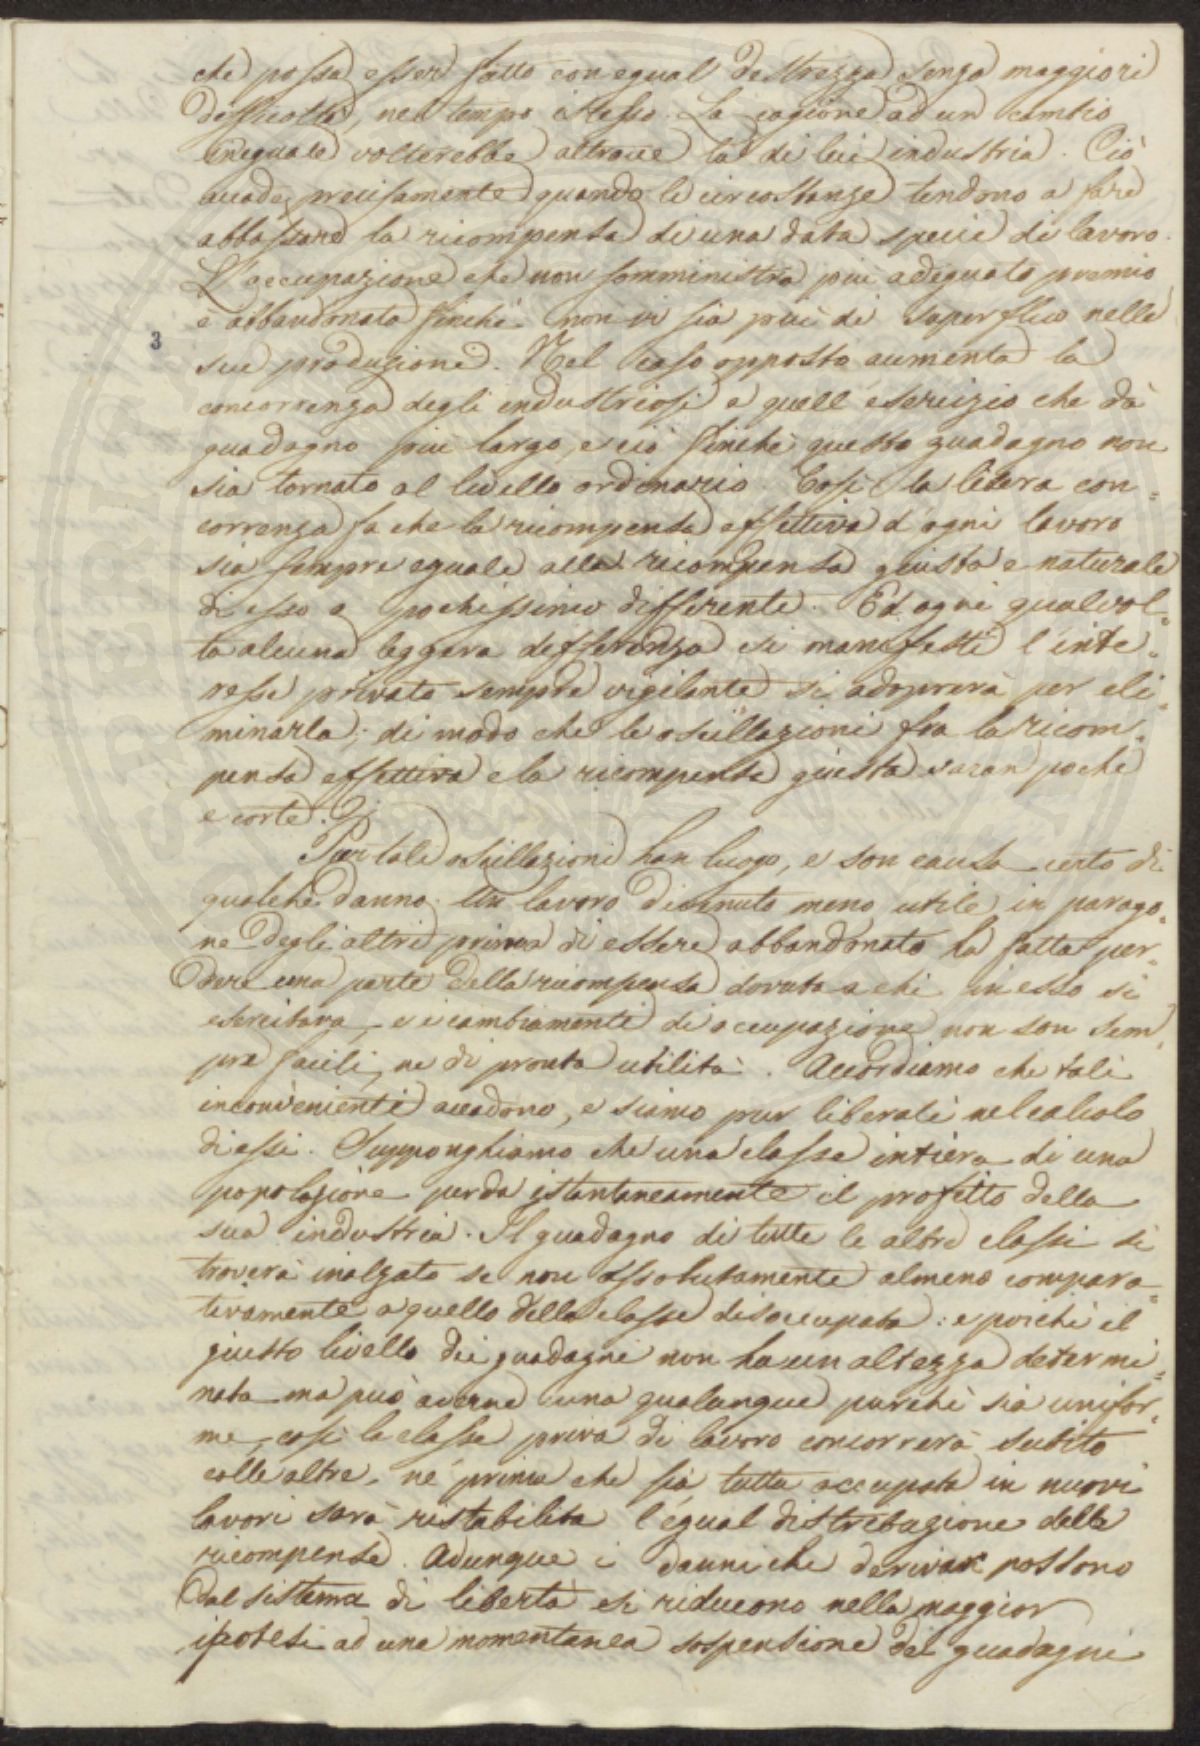 che possa esser fatto con egual destrezza senza maggiori
difficoltà, nel tempo istesso. La cagione ad un cambio
ineguale volterebbe altrove la di lui industria. Ciò
accade precisamente quando le circostanze tendono a fare
abbassare la ricompensa di una data specie di lavoro.
L'occupazione che non somministra più adeguato premio
è abbandonata finchè non vi sia più di superfluo nelle
3
sue produzione. Nel caso opposto aumenta la
concorrenza degli industriosi a quell'esercizio che dà
guadagno più largo, e ciò finchè questo guadagno non
sia tornato al livello ordinario. Così la libera con=
correnza fa che la ricompensa effettiva d'ogni lavoro
sia sempre eguale alla ricompensa giusta e naturale
di esso o pochissimo differente. Ed ogni qualvol=
ta alcuna leggera differenza si manifesti l'inte=
resse privato sempre vigilante si adoprerà per eli=
minarla; di modo che le oscillazioni fra la ricom=
pensa effettiva e la ricompensa giusta saran poche
e corte.
Pur tali oscillazioni han luogo, e son causa certo di
qualche danno. Un lavoro divenuto meno utile in parago=
ne degli altri prima di essere abbandonato ha fatta per=
dere una parte della ricompensa dovuta a chi in esso si
esercitava, e i cambiamenti di occupazione non son sem=
pre facili, ne di pronta utilità. Accordiamo che tali
inconvenienti accadono, e siamo pur liberali nel calcolo
di essi. Supponghiamo che una classe intiera di una
popolazione perda istantaneamente il profitto della
sua industria. Il guadagno di tutte le altre classi si
troverà inalzato se non assolutamente almeno compara=
tivamente a quello della classe disoccupata: e poichè il
giusto livello dei guadagni non ha un altezza determi=
nata ma può averne una qualunque purchè sia unifor=
me, così la classe priva di lavoro concorrerà subito
colle altre, né prima che sia tutta occupata in nuovi
lavori sarà ristabilita l'egual distribuzione delle
ricompense. Adunque i danni che derivar possono
dal sistema di libertà si riducono nella maggior
ipotesi ad una momentanea sospensione dei guadagni